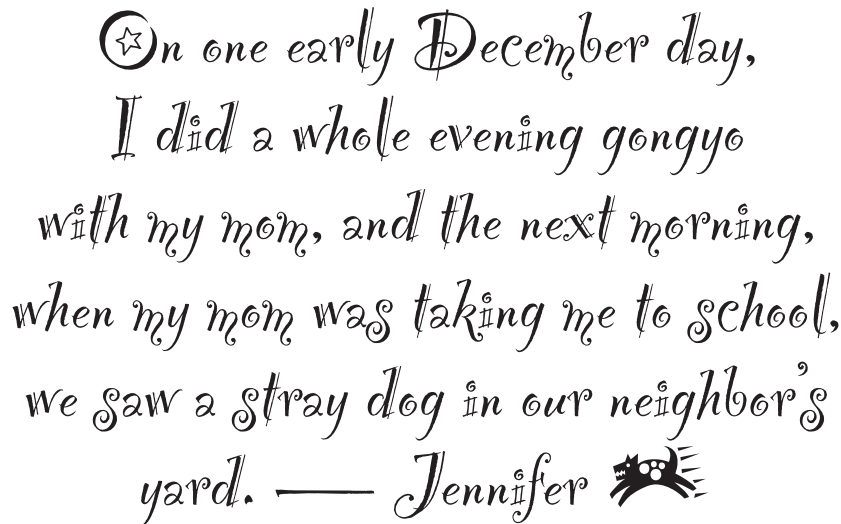 On one early December day,
I did a whole evening gongyo
with my mom, and the next morning,
when my mom was taking me to school,
we saw a stray dog in our neighbor's
yard. — Jennifer